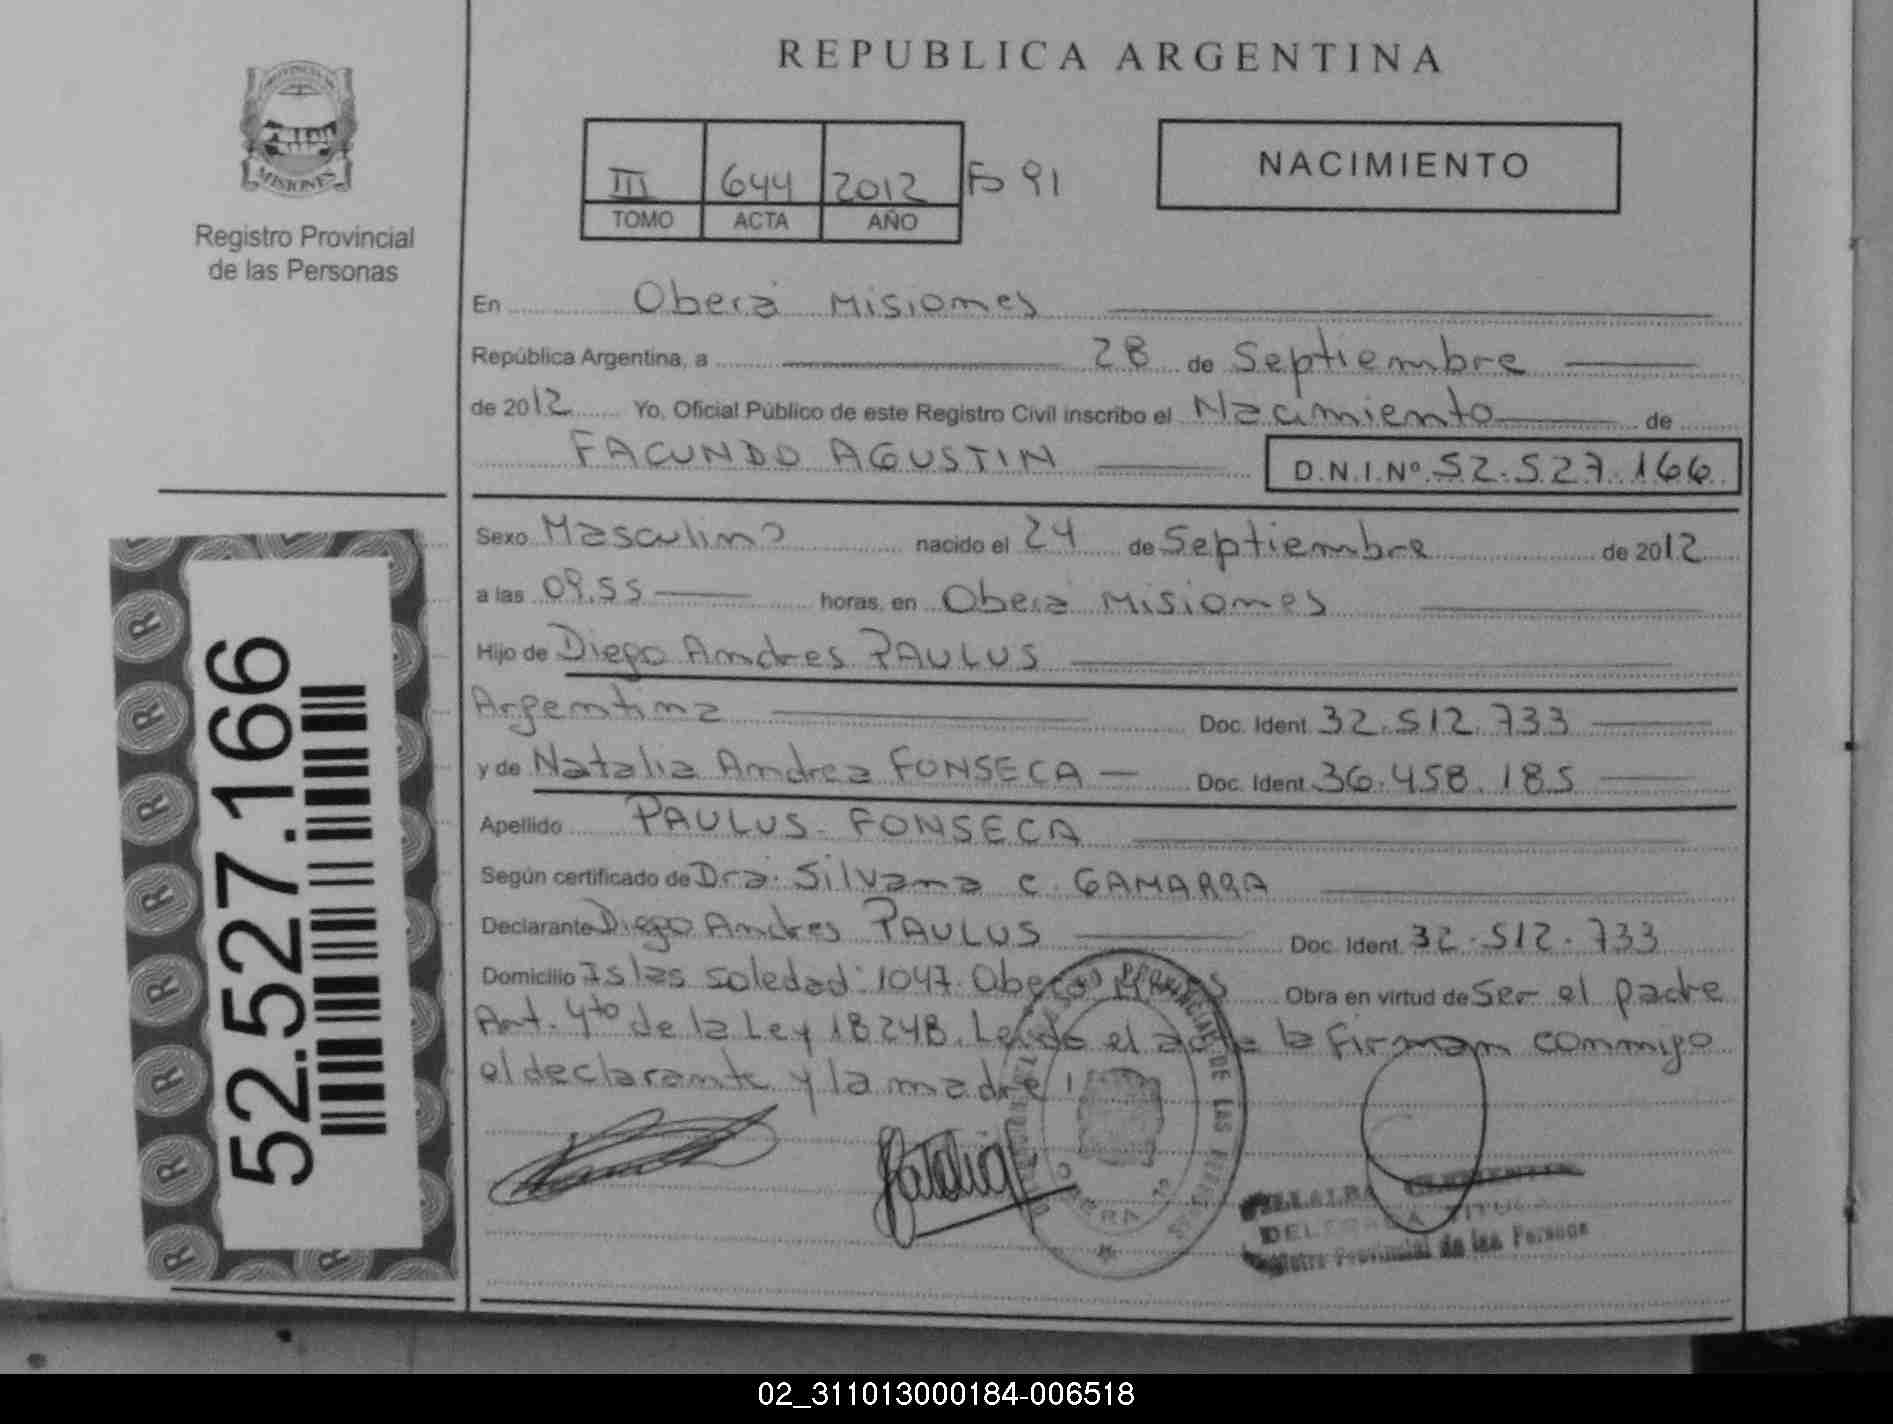 REPUBLICA ARGENTINA
PROVINCIA DE
MISIONES
Registro Provincial
de las Personas
III 644 2012 Fo 91
TOMO ACTA AÑO
NACIMIENTO
En Oberá Misiones
República Argentina, a 28 de Septiembre
de 2012 Yo, Oficial Público de este Registro Civil inscribo el Nacimiento de
FACUNDO AGUSTIN D.N.I.Nº 52.527.166
Sexo Masculino nacido el 24 de Septiembre de 2012
a las 09.55 horas, en Oberá Misiones
Hijo de Diego Andres PAULUS
Argentina Doc. Ident. 32.512.733
y de Natalia Andrea FONSECA Doc. Ident. 36.458.185
Apellido PAULUS - FONSECA
Según certificado de Dra. Silvana C. GAMARRA
Declarante Diego Andres PAULUS Doc. Ident. 32.512.733
Domicilio Islas Soledad 1047 Oberá Obra en virtud de Ser el padre
Art. 4to de la Ley 18248. Leido el acta la Firman conmigo
el declarante y la madre
DELEGADA TITULAR
Registro Provincial de las Personas
52.527.166
02_311013000184-006518